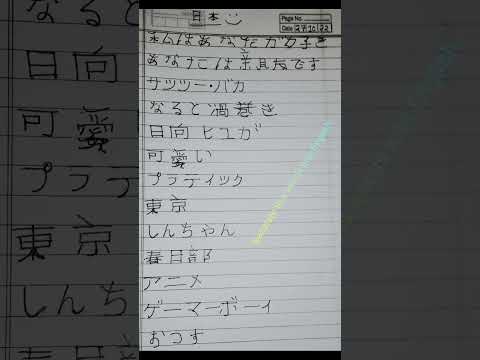 日本
Page No
Date 27 10 22
私はあなたが好き
あなたは親友です
サッツー・バカ
なると渦巻き
日向ヒュガ
可愛い
プラティック
東京
しんちゃん
春日部
アニメ
ゲーマーボーイ
おつす